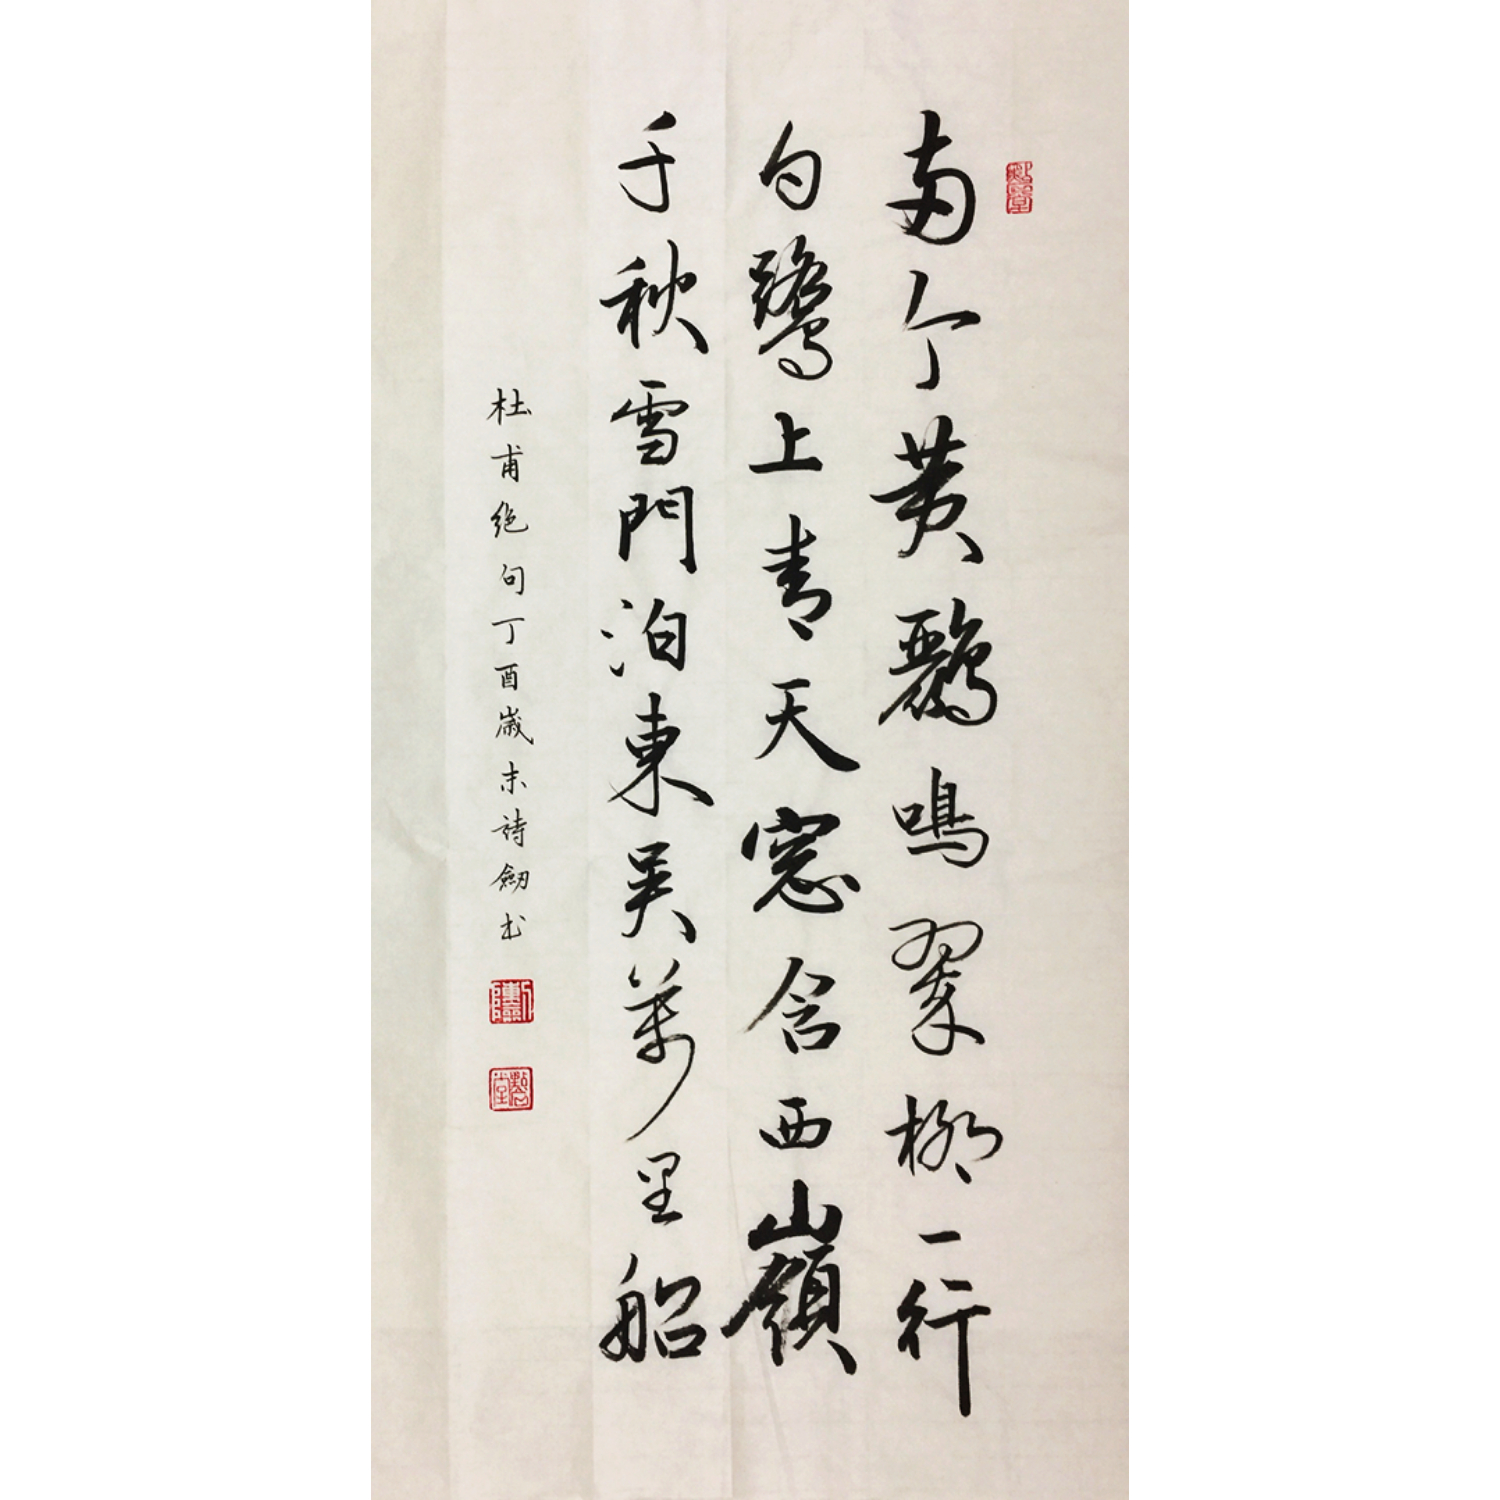 两个黄鸝鳴翠柳一行
白鷺上青天窓含西嶺
千秋雪門泊東吴萬里船
杜甫絶句丁酉歲末詩劔书